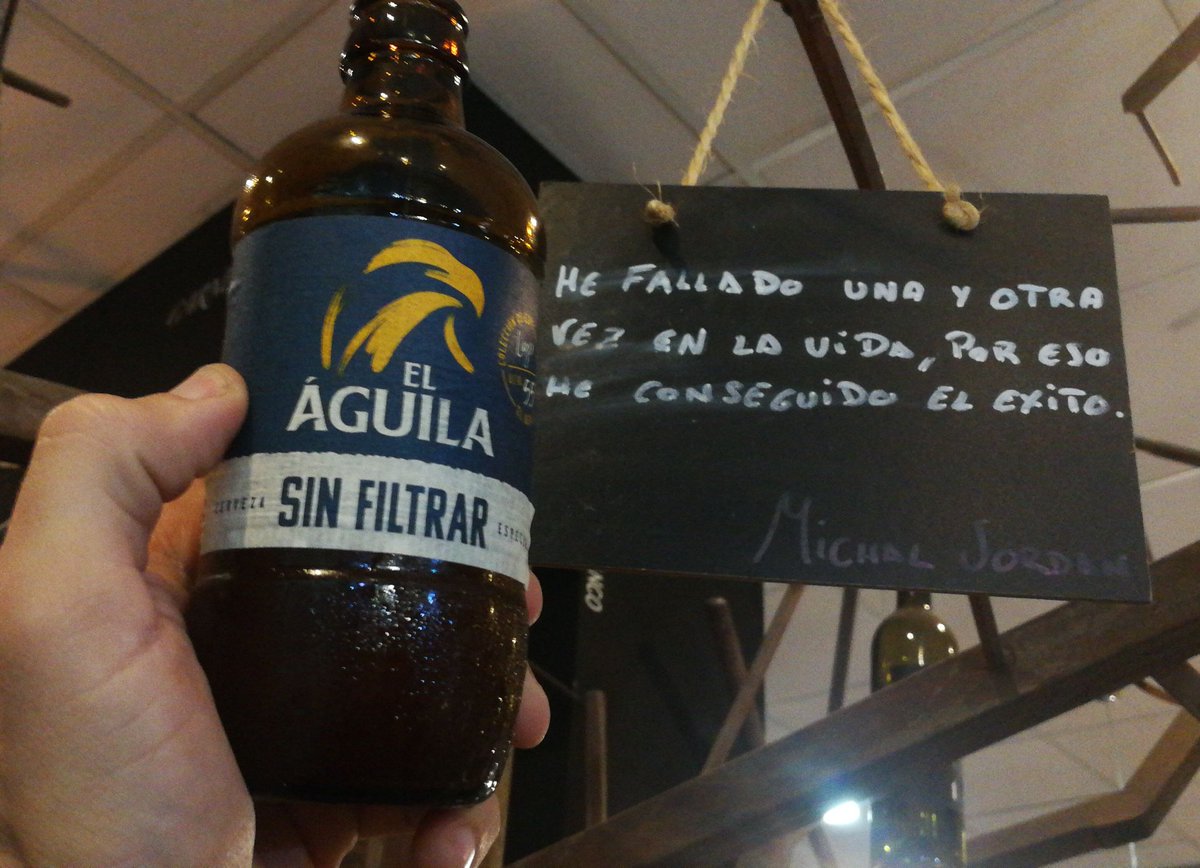 EL
ÁGUILA
CERVEZA SIN FILTRAR
HE FALLADO UNA Y OTRA
VEZ EN LA VIDA, POR ESO
HE CONSEGUIDO EL EXITO.
MICHAL JORDAN